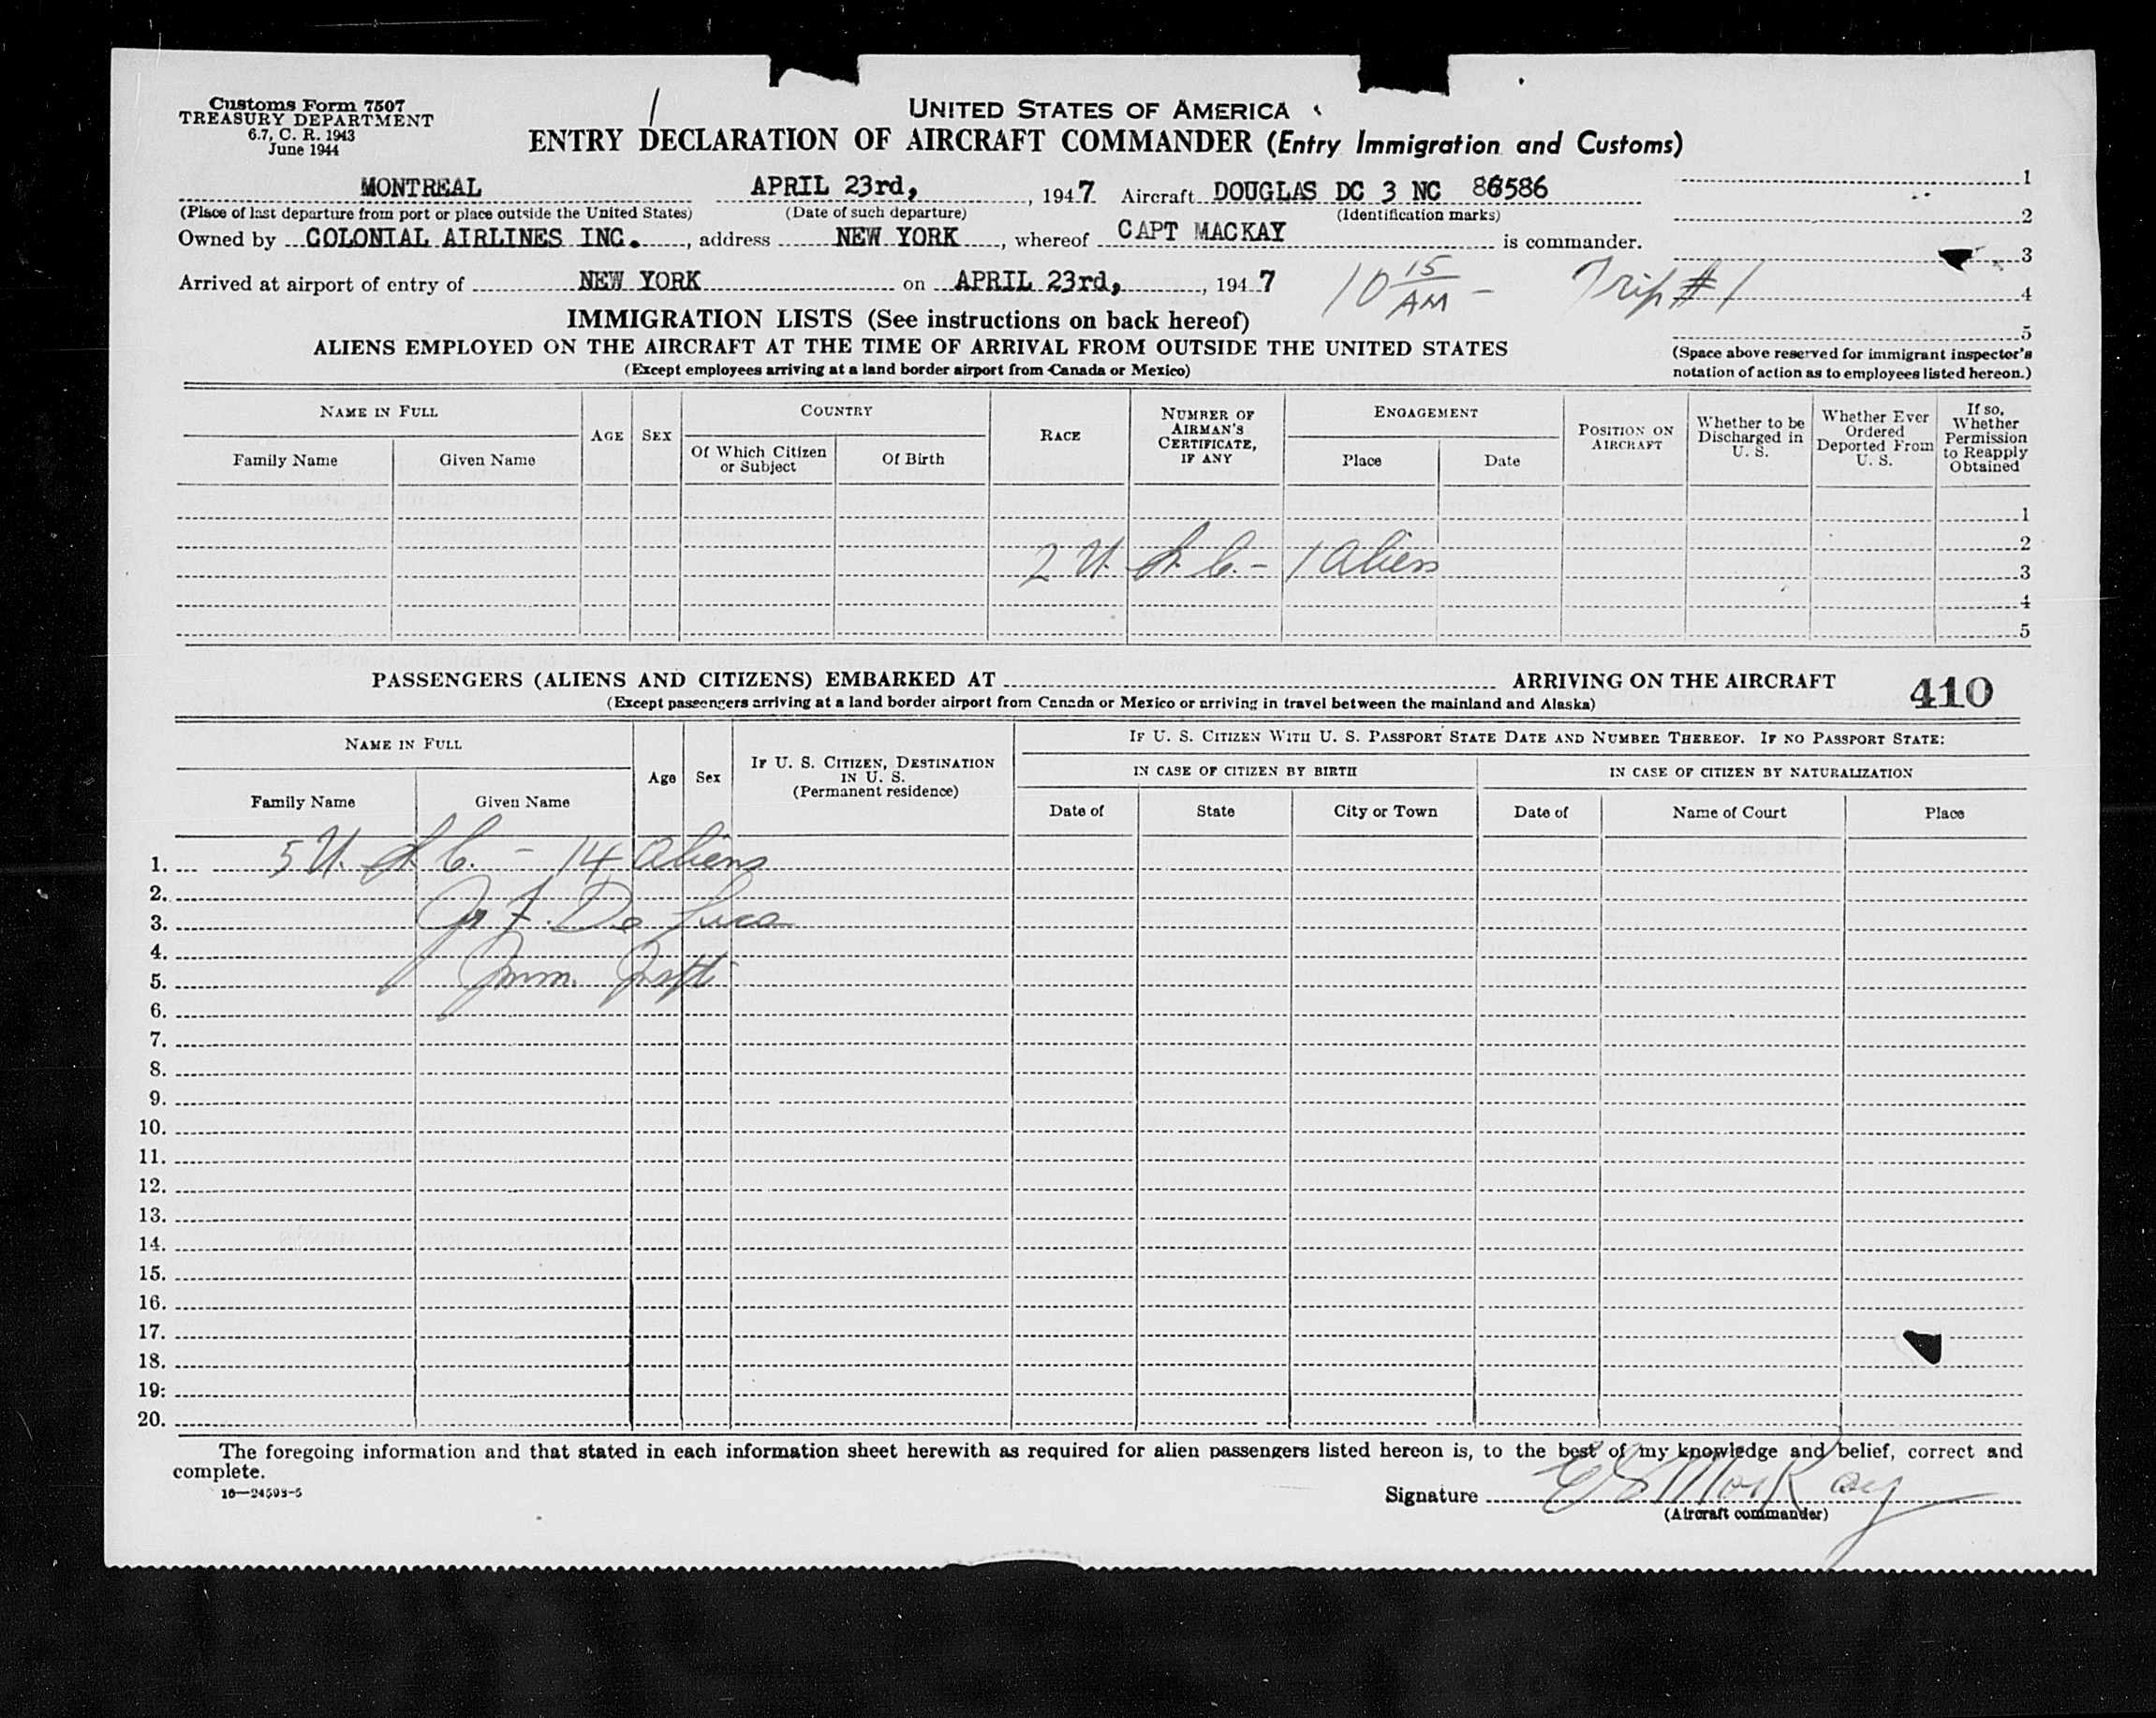 Customs Form 7507
TREASURY DEPARTMENT
6.7, C. R. 1943
June 1944
UNITED STATES OF AMERICA
ENTRY DECLARATION OF AIRCRAFT COMMANDER (Entry Immigration and Customs)
MONTREAL APRIL 23rd, , 1947 Aircraft DOUGLAS DC 3 NC 86586 1
(Place of last departure from port or place outside the United States) (Date of such departure) (Identification marks) 2
Owned by COLONIAL AIRLINES INC. , address NEW YORK , whereof CAPT MACKAY is commander. 3
Arrived at airport of entry of NEW YORK on APRIL 23rd, , 1947 10 15 AM - Trip # 1 4
IMMIGRATION LISTS (See instructions on back hereof) 5
ALIENS EMPLOYED ON THE AIRCRAFT AT THE TIME OF ARRIVAL FROM OUTSIDE THE UNITED STATES
(Space above reserved for immigrant inspector's
notation of action as to employees listed hereon.)
(Except employees arriving at a land border airport from Canada or Mexico)
NAME IN FULL
Family Name Given Name
AGE SEX
COUNTRY
Of Which Citizen or Subject Of Birth
RACE
NUMBER OF AIRMAN'S CERTIFICATE, IF ANY
ENGAGEMENT
Place Date
POSITION ON AIRCRAFT
Whether to be Discharged in U. S.
Whether Ever Ordered Deported From U. S.
If so, Whether Permission to Reapply Obtained
1
2
2 U. S. C. - 1 Alien 3
4
5
PASSENGERS (ALIENS AND CITIZENS) EMBARKED AT ARRIVING ON THE AIRCRAFT 410
(Except passengers arriving at a land border airport from Canada or Mexico or arriving in travel between the mainland and Alaska)
NAME IN FULL
Family Name Given Name
Age Sex
IF U. S. CITIZEN, DESTINATION IN U. S.
(Permanent residence)
IF U. S. CITIZEN WITH U. S. PASSPORT STATE DATE AND NUMBER THEREOF. IF NO PASSPORT STATE:
IN CASE OF CITIZEN BY BIRTH IN CASE OF CITIZEN BY NATURALIZATION
Date of State City or Town Date of Name of Court Place
1. 5 U. S. C. - 14 Aliens
2.
3. De Luca
4.
5. Imm. Inspt
6.
7.
8.
9.
10.
11.
12.
13.
14.
15.
16.
17.
18.
19.
20.
The foregoing information and that stated in each information sheet herewith as required for alien passengers listed hereon is, to the best of my knowledge and belief, correct and
complete.
16—24593-5
Signature E S MacKay
(Aircraft commander)